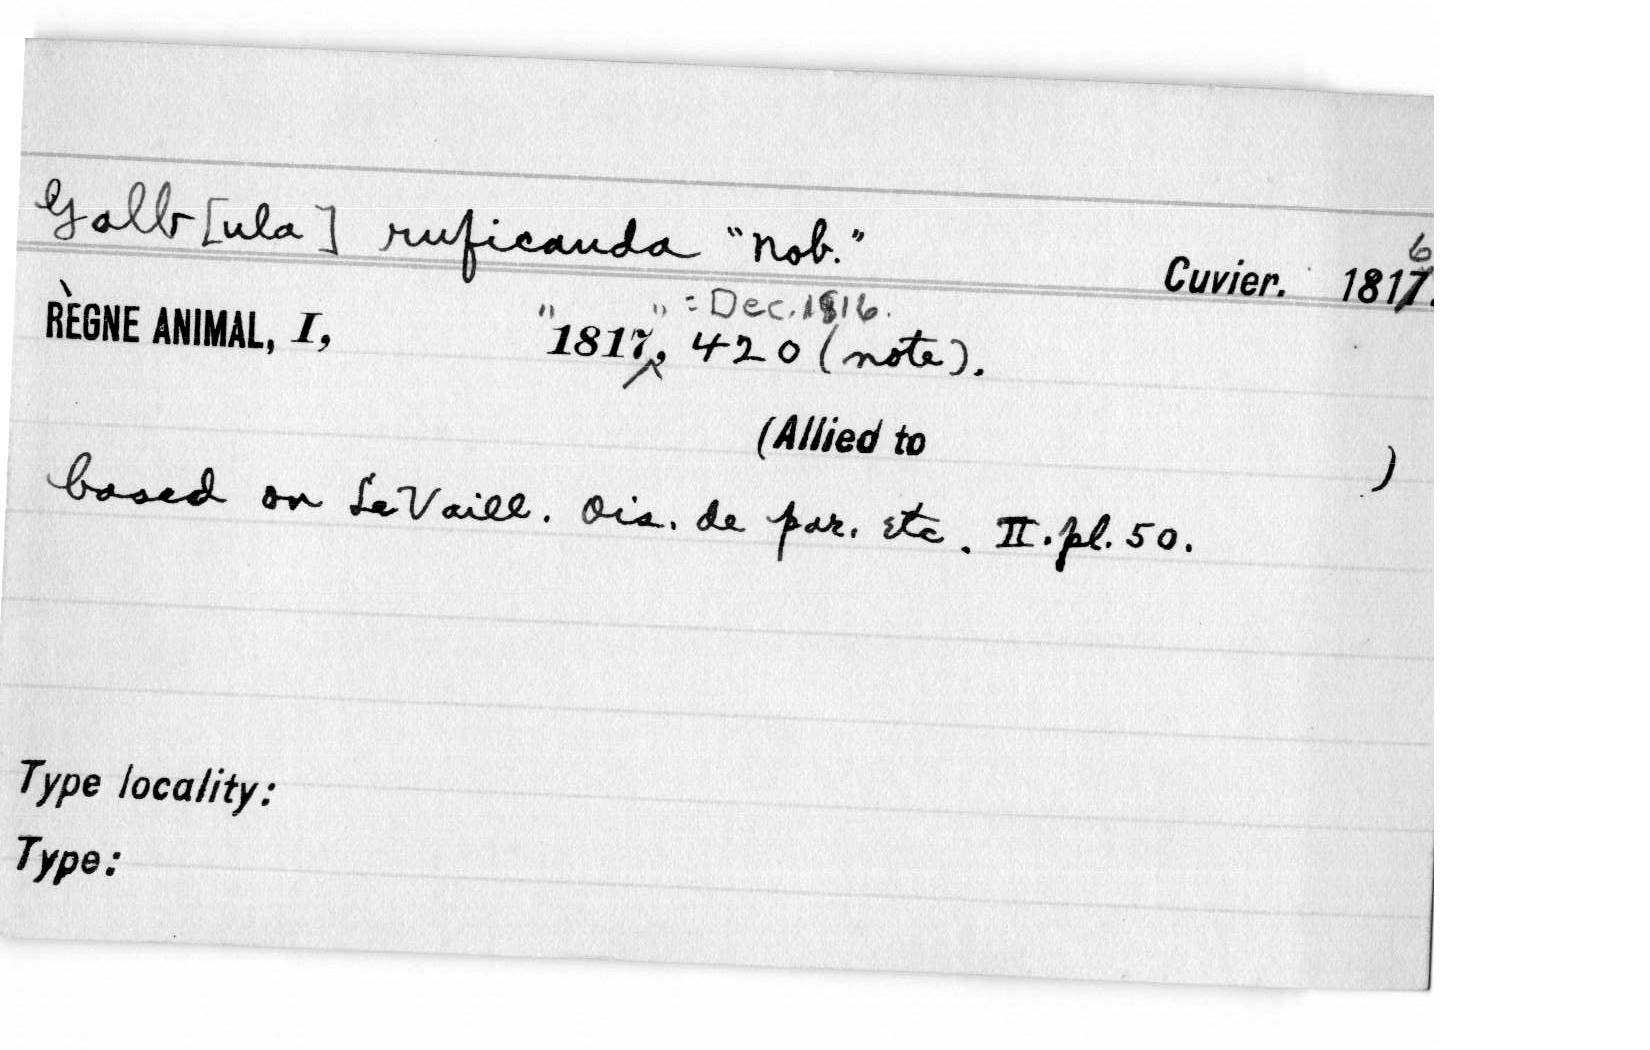 Galb[ula] ruficauda "Nob."
Cuvier. 1817. 6
RÈGNE ANIMAL, I, "1817," = Dec. 1816. 420 (note).
(Allied to )
based on Le Vaill. Ois. de par. etc. II. pl. 50.
Type locality:
Type: